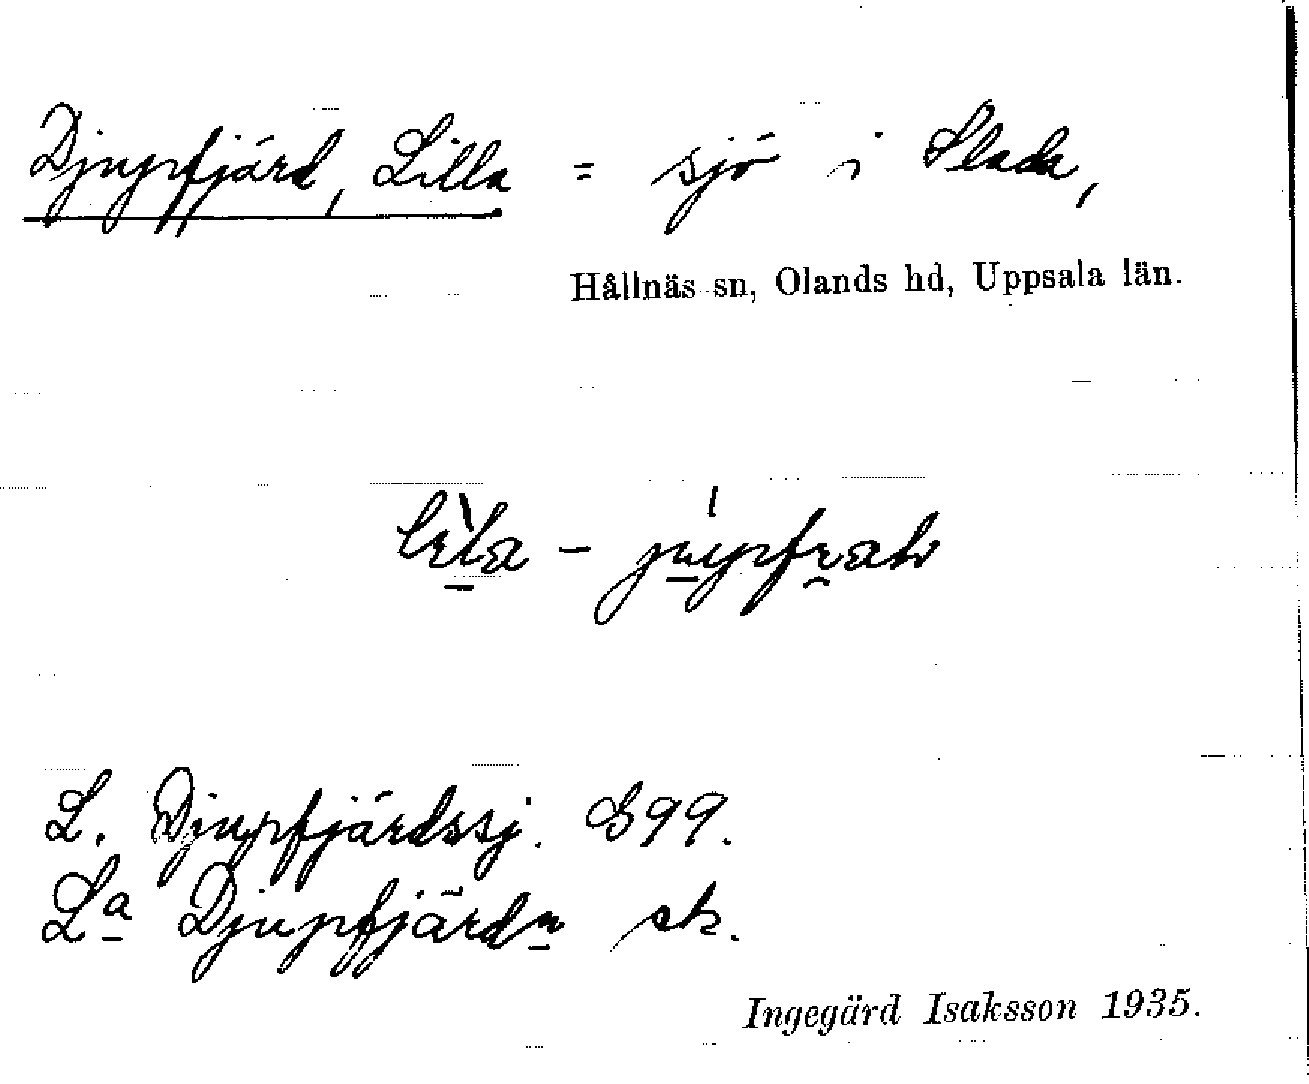 Djupfjärd, Lilla = sjö i Slada,
Hållnäs sn, Olands hd, Uppsala län.
L. Djupfjärdssj. S99.
La Djupfjärdn sk.
Ingegärd Isaksson 1935.